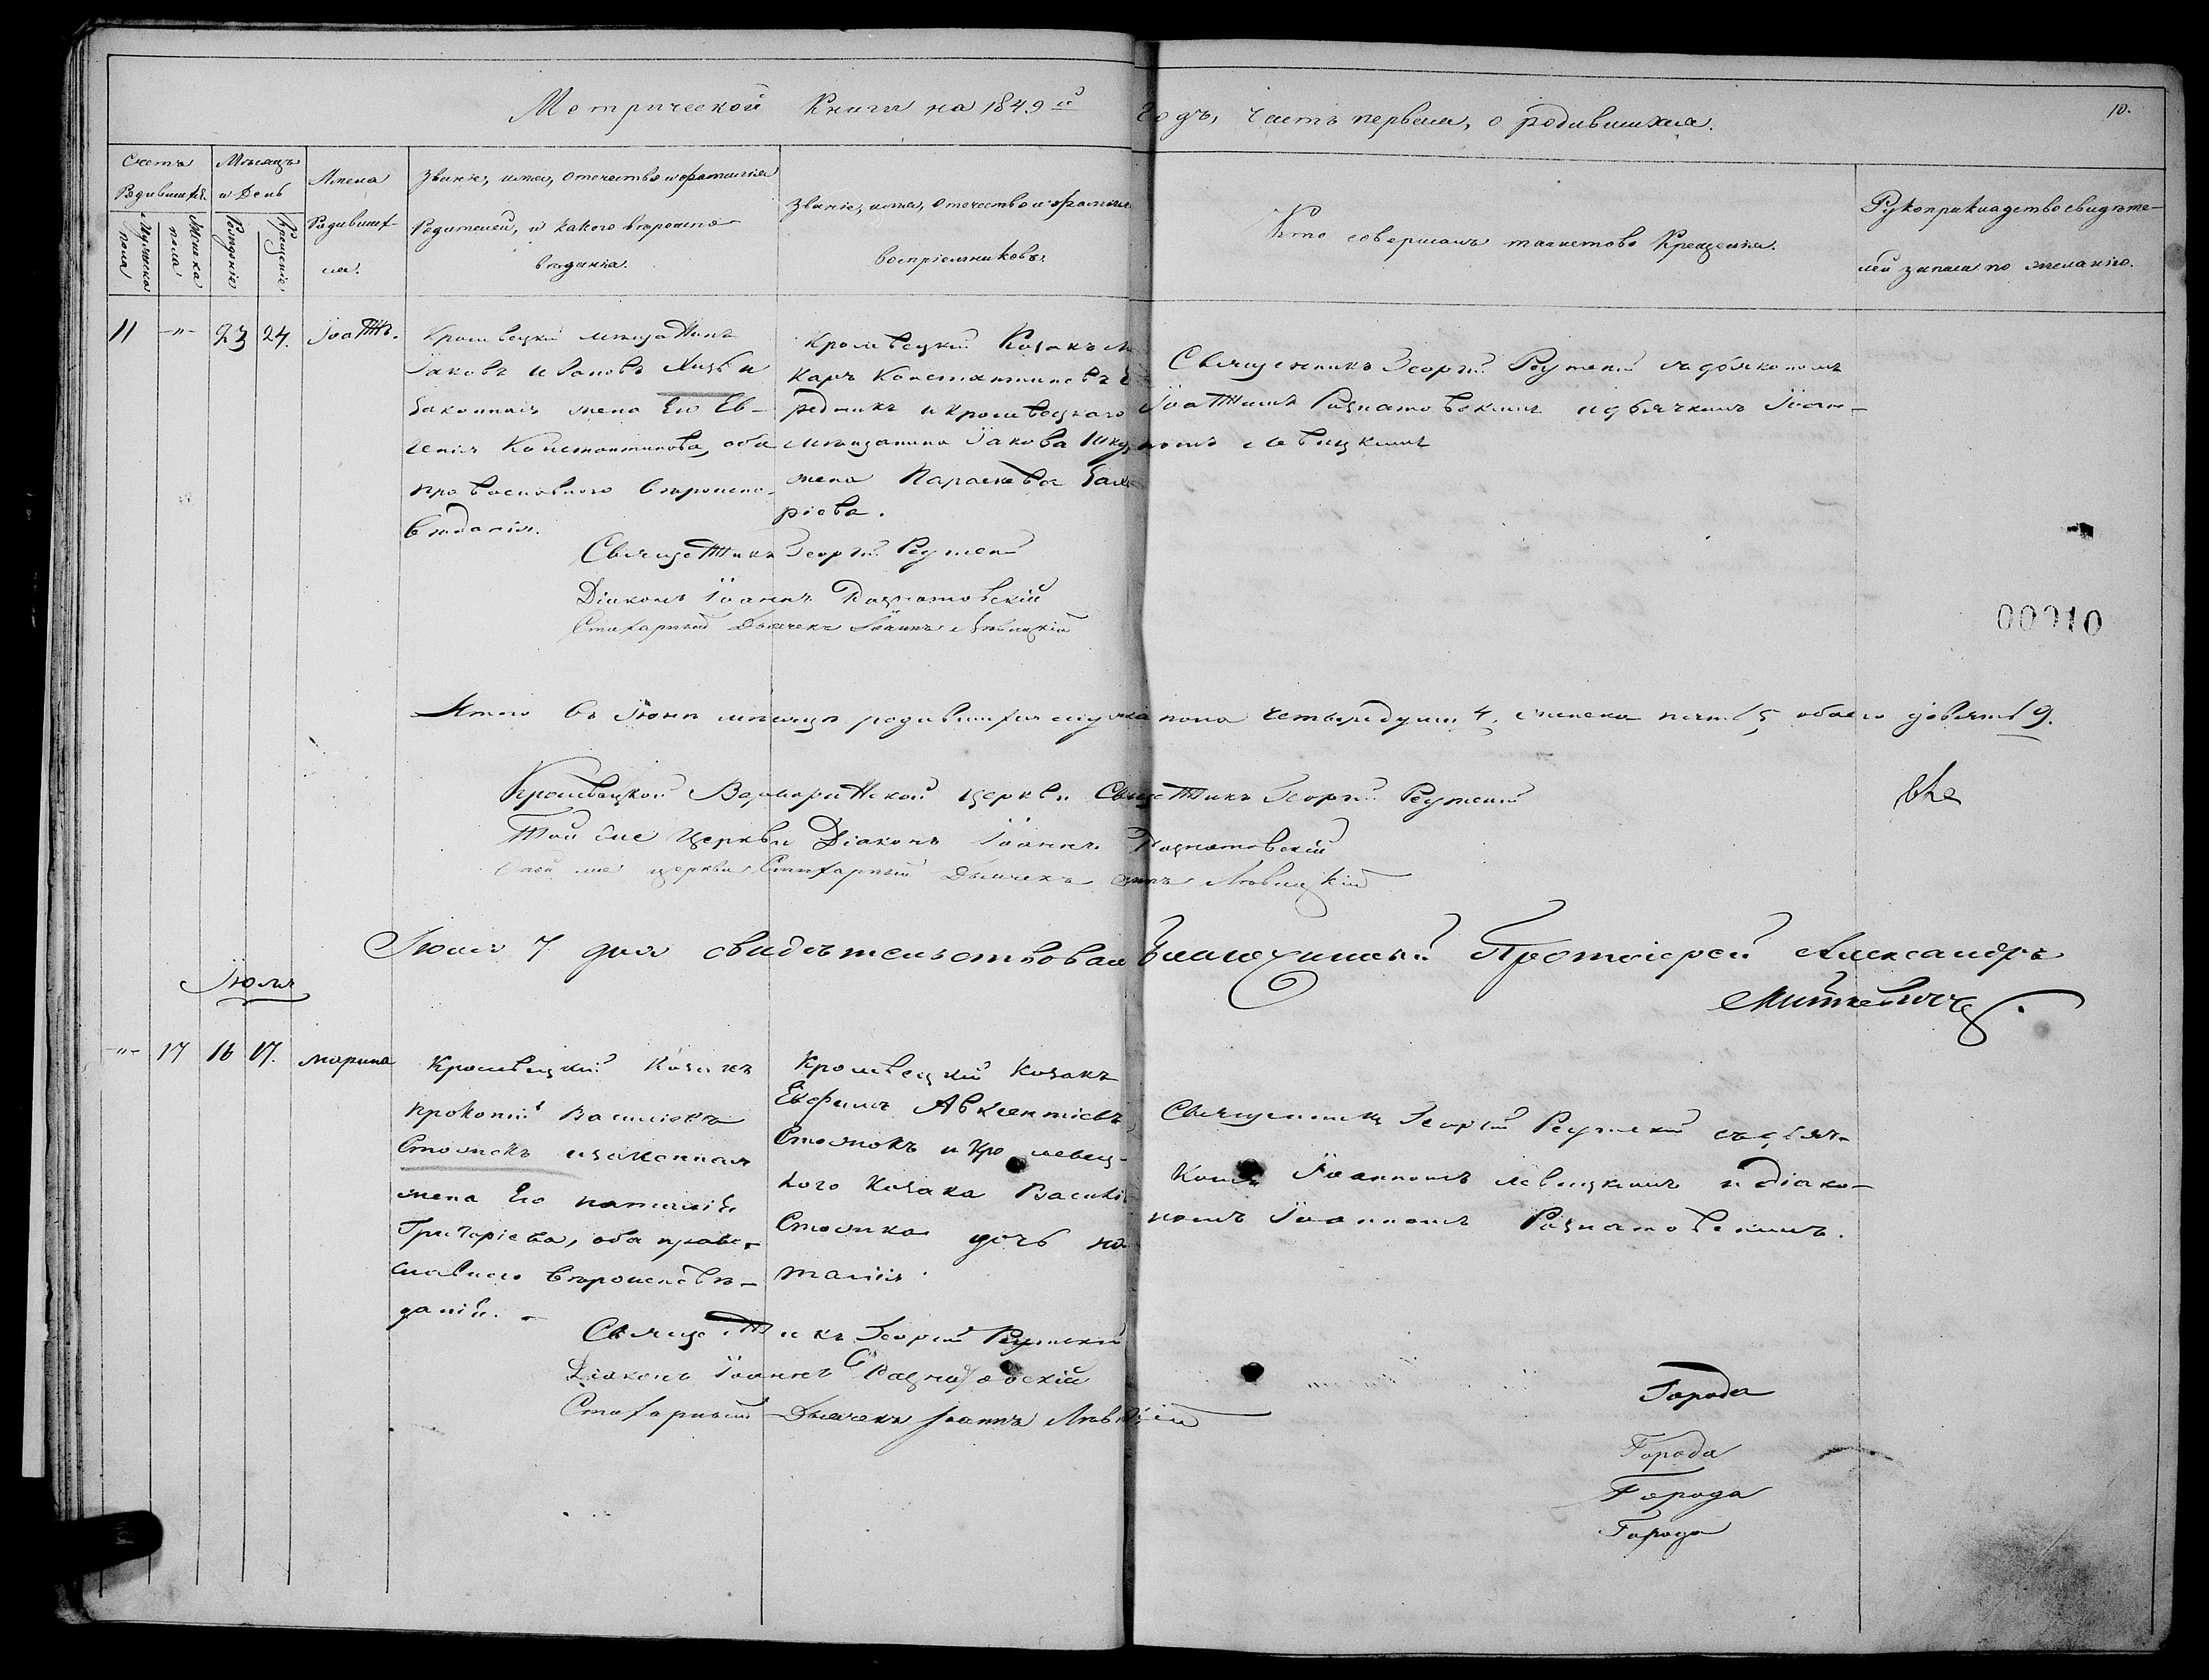 Метрической Книги на 1849й годъ, часть первая, о родившихся.
10.
Счетъ Родившихся.
Мужеска пола
Женска пола
Мѣсяцъ и День
Рожденіе
Крещеніе
Имена
Родивших-
ся.
Званіе, имя, отечество и фамилія
Родителей, и какого вѣроиспо-
вѣданія.
Званіе, имя, отечество и фамилія
воспріемниковъ.
Кто совершалъ таинство Крещенія.
Рукоприкладство свидѣте-
лей записи по желанію.
11 -"- 23 24. Іоаннъ.
Кролевецкій мѣщанинъ
Іаковъ Ивановъ и
законная жена Его Ев-
генія Константинова, оба
православного вѣроиспо-
вѣданія.
Кролевецкій Козакъ
Карпъ Константиновъ
редникъ и Кролевецкаго
мѣщанина Іакова
жена Параскева
ріева.
Священникъ Георгій Реутскій съ діакономъ
Іоанномъ Рознатовскимъ и дьячкомъ Іоан-
номъ Левицкимъ
Священникъ Георгій Реутскій
Діаконъ Іоаннъ Рознатовскій
Стихарный Дьячекъ Іоаннъ Левицкій
00010
Итого въ Іюнѣ мѣсяцѣ родившихся мужска пола четыре души 4, женска пять 5, обоего девять 9.
Кролевецкой Варваринской церкви Священникъ Георгій Реутскій
Той же Церкви Діаконъ Іоаннъ Рознатовскій
Той же церкви Стихарный Дьячекъ Левицкій
Іюля 7 дня свидѣтельствовалъ Благочинный Протоіерей Александръ
Миткевичъ.
Іюля
-"- 17 16 17. Марина
Кролевецкій Козакъ
Прокопій Василіевъ
Стожокъ и законная
жена Его Наталія
Григоріева, оба право-
славнаго вѣроисповѣ-
данія.
Кролевецкій Козакъ
Евфимъ Авксентіевъ
Стожокъ и Кролевец-
кого Козака Василія
Стожка дочь На-
талія.
Священникъ Георгій Реутскій съ дьяч-
комъ Іоанномъ Левицкимъ и діако-
номъ Іоанномъ Рознатовскимъ.
Священникъ Георгій Реутскій
Діаконъ Іоаннъ Рознатовскій
Стихарный Дьячекъ Іоаннъ Левицкій
Города
Города
Города
Города